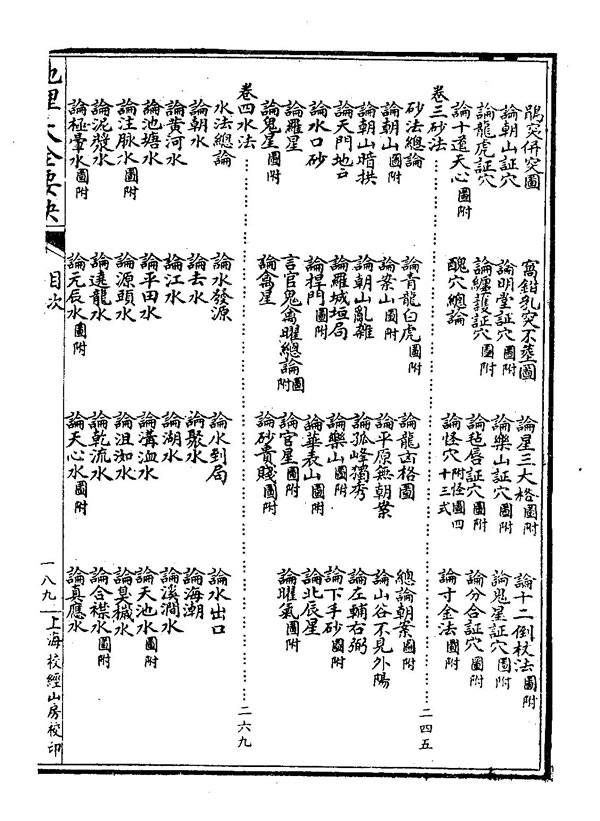 鶻突併突圖　窩鉗乳突不葬圖　論星三大格圖附　論十二倒杖法圖附
論朝山証穴　論明堂証穴圖附　論樂山証穴圖附　論鬼星証穴圖附
論龍虎証穴　論纏護証穴圖附　論毡唇証穴圖附　論分合証穴圖附
論十道天心圖附　醜穴總論　論怪穴附怪圖四十三式　論寸金法圖附
卷三砂法……二四五
砂法總論　論青龍白虎圖附　論龍吉格圖　總論朝案圖附
論朝山圖附　論案山圖附　論平原無朝案　論山谷不見外陽
論朝山暗拱　論朝山亂雜　論孤峰獨秀　論左輔右弼
論天門地戶　論羅城垣局　論樂山圖附　論下手砂圖附
論水口砂　論捍門圖附　論華表山圖附　論北辰星
論羅星　言官鬼禽曜總論圖附　論官星圖附　論曜氣圖附
論鬼星圖附　論禽星　論砂貴賤圖附
卷四水法……二六九
水法總論　論水發源　論水到局　論水出口
論朝水　論去水　論聚水　論海潮
論黃河水　論江水　論湖水　論溪澗水
論池塘水　論平田水　論溝洫水　論天池水圖附
論注脉水圖附　論源頭水　論沮洳水　論臭穢水
論泥漿水　論送龍水　論乾流水　論合襟水圖附
論極暈水圖附　論元辰水圖附　論天心水圖附　論真應水
地理大全要訣　目次　一八九　上海校經山房校印